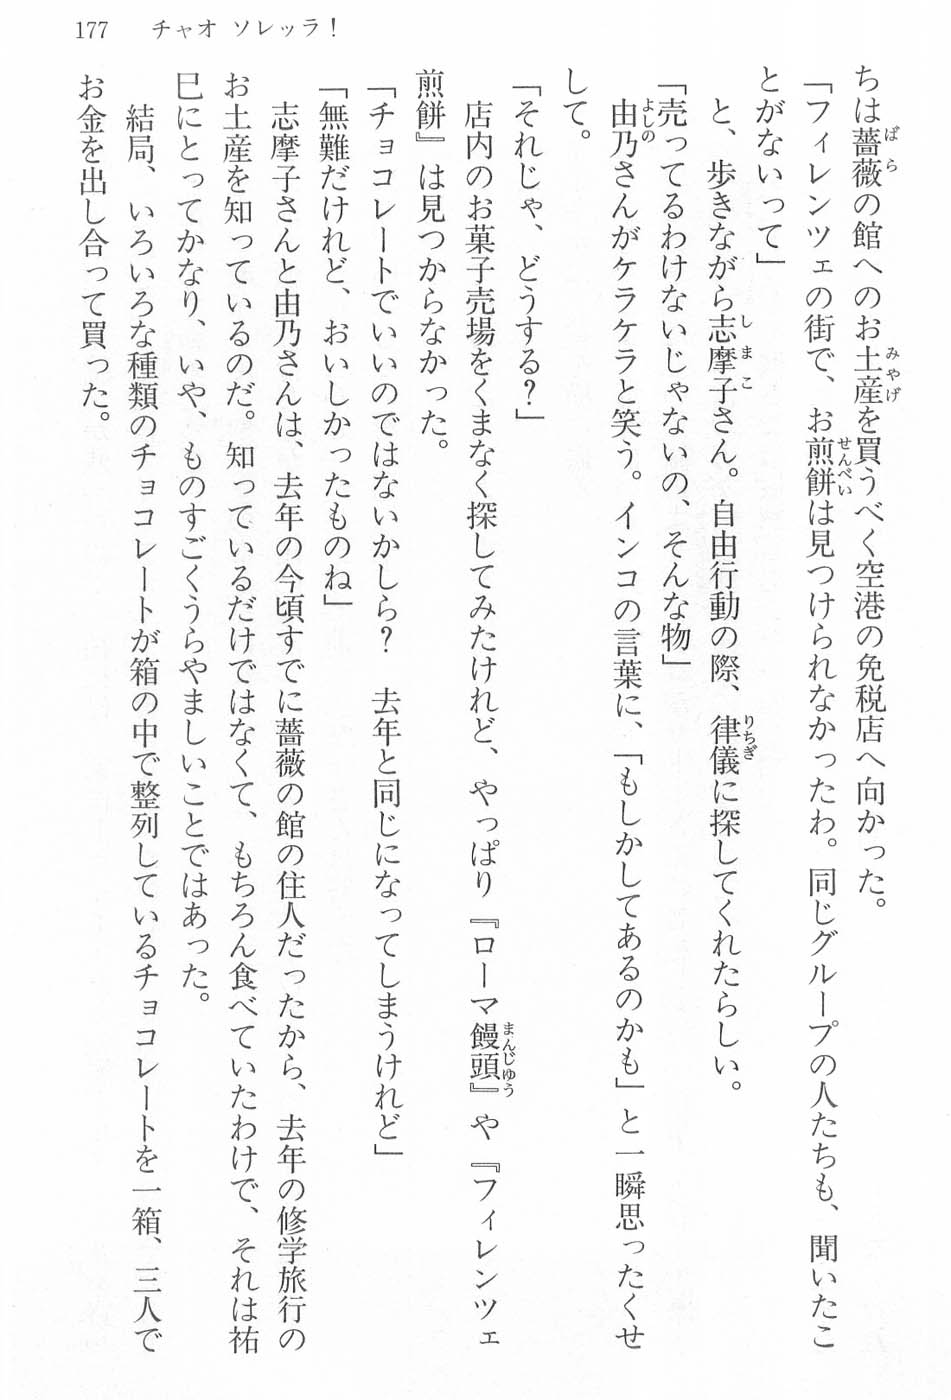 177　チャオ ソレッラ！
ちは薔薇の館へのお土産を買うべく空港の免税店へ向かった。
「フィレンツェの街で、お煎餅は見つけられなかったわ。同じグループの人たちも、聞いたこ
とがないって」
　と、歩きながら志摩子さん。自由行動の際、律儀に探してくれたらしい。
「売ってるわけないじゃないの、そんな物」
　由乃さんがケラケラと笑う。インコの言葉に、「もしかしてあるのかも」と一瞬思ったくせ
して。
「それじゃ、どうする？」
　店内のお菓子売場をくまなく探してみたけれど、やっぱり『ローマ饅頭』や『フィレンツェ
煎餅』は見つからなかった。
「チョコレートでいいのではないかしら？　去年と同じになってしまうけれど」
「無難だけれど、おいしかったものね」
　志摩子さんと由乃さんは、去年の今頃すでに薔薇の館の住人だったから、去年の修学旅行の
お土産を知っているのだ。知っているだけではなくて、もちろん食べていたわけで、それは祐
巳にとってかなり、いや、ものすごくうらやましいことではあった。
　結局、いろいろな種類のチョコレートが箱の中で整列しているチョコレートを一箱、三人で
お金を出し合って買った。